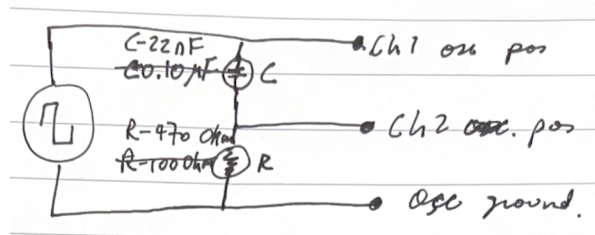 C-22nF
C0.10μF C
Ch1 osc pos
R-470 Ohm
R-100Ohm R
Ch2 osc. pos
Osc ground.